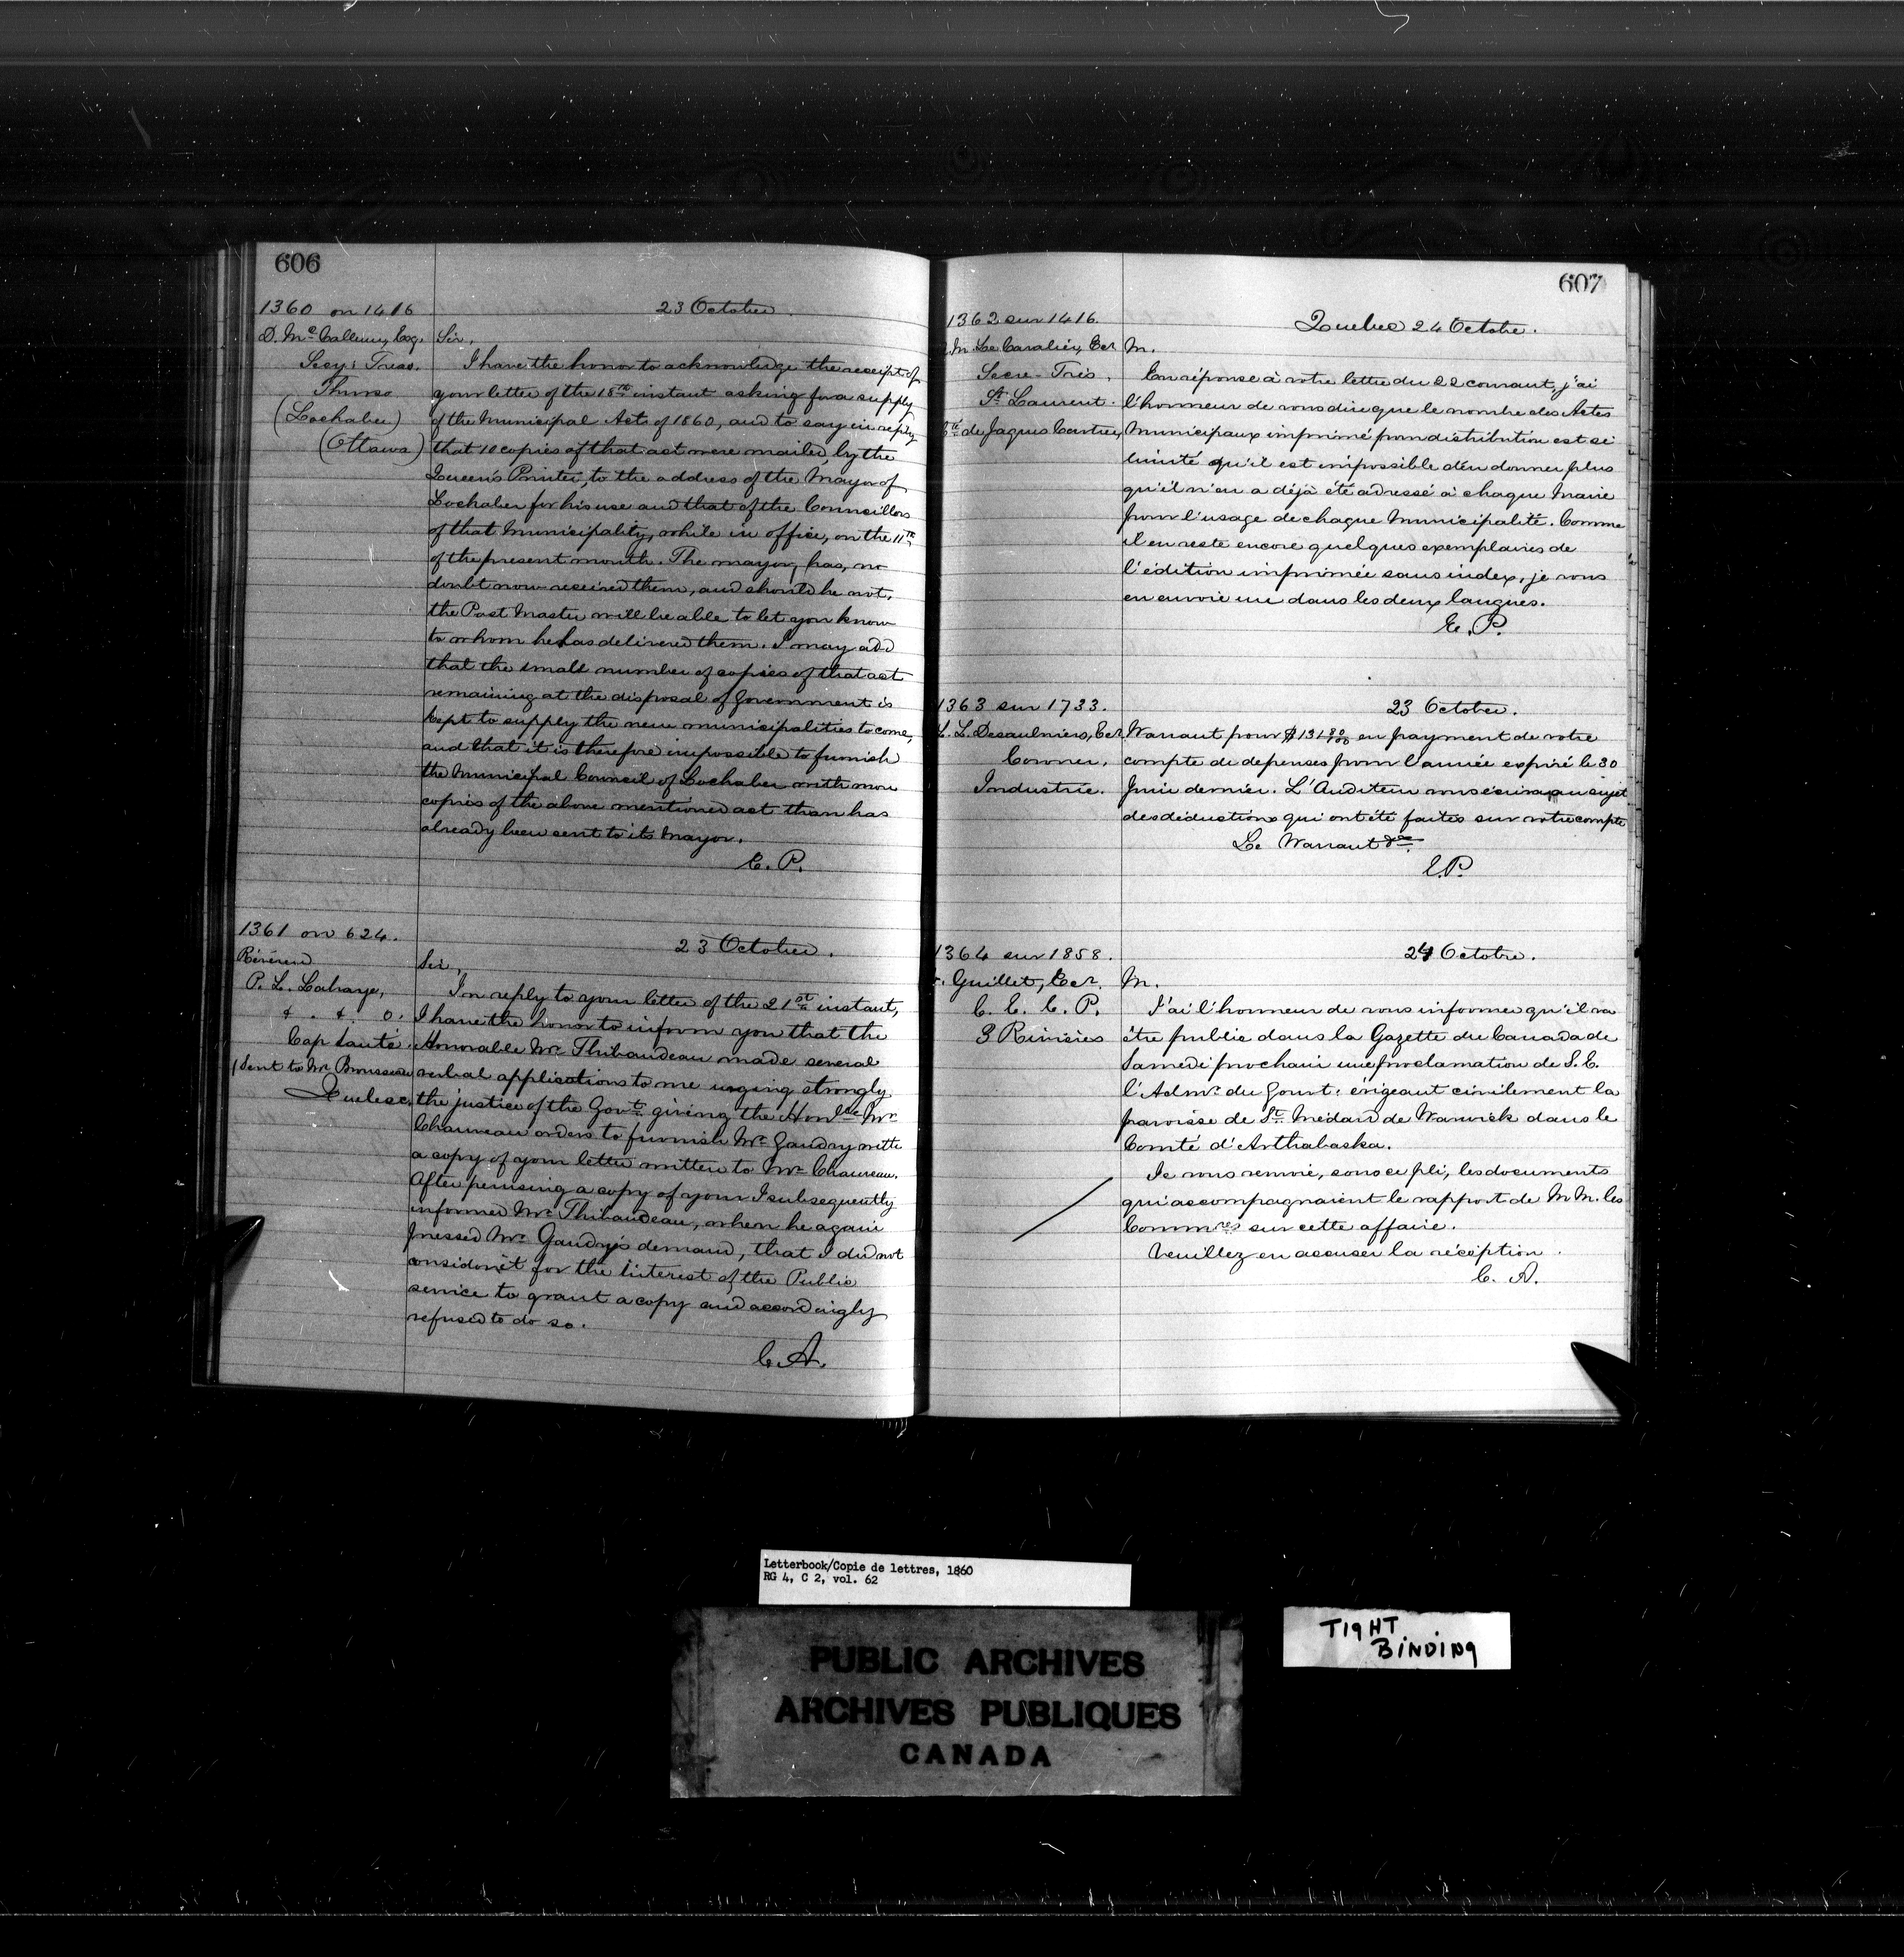 606
1360 on 1416
23 October.
D. McCallum, Esq.
Secy: Treas.
Thurso
(Lochaber)
(Ottawa)
Sir,
I have the honor to acknowledge the receipt of
your letter of the 18th instant asking for a supply
of the Municipal Acts of 1860, and to say in reply
that 10 copies of that act were mailed, by the
Queen's Printer, to the address of the Mayor of
Lochaber for his use and that of the Councillors
of that Municipality, while in office, on the 11th
of the present month. The mayor, has, no
doubt now received them, and should he not,
the Post Master will be able to let you know
to whom he has delivered them. I may add
that the small number of copies of that act
remaining at the disposal of Government is
kept to supply the new municipalities to come,
and that it is therefore impossible to furnish
the Municipal Council of Lochaber with more
copies of the above mentioned act than has
already been sent to its Mayor.
E. P.
1361 on 624.
23 October.
Révérend
P. L. Lahaye,
Cap Santé.
(Sent to Mr Brousseau
Quebec.
Sir,
In reply to your letter of the 21st instant,
I have the honor to inform you that the
Honorable Mr. Thibaudeau made several
verbal applications to me urging strongly
the justice of the Govt. giving the Honble Mr
Chauveau orders to furnish Mr Gaudry with
a copy of your letter written to Mr Chauveau.
After perusing a copy of your I subsequently
informed Mr. Thibaudeau, when he again
pressed Mr. Gaudry's demand, that I did not
consider it for the interest of the Public
service to grant a copy and accordingly
refused to do so.
C. A.
607
1362 sur 1416.
Quebec 24 Octobre.
M. Le Cavalier, Ecr
Secre-Trés.
St. Laurent.
Cté de Jaques Cartier,
M.
En réponse à votre lettre du 22 courant, j'ai
l'honneur de vous dire que le nombre des Actes
Municipaux imprimé pour distribution est si
limité qu'il est impossible d'en donner plus
qu'il n'en a déjà été adressé à chaque Maire
pour l'usage de chaque Municipalité. Comme
il en reste encore quelques exemplaires de
l'édition imprimée sans index, je vous
en envoie un dans les deux langues.
E. P.
1363 sur 1733.
23 October.
L. L. Desaulniers, Ecr
Coroner,
Industrie.
Warrant pour $131 en payment de votre
compte de depenses pour l'année expiré le 30
Juin dernier. L'Auditeur vous écrira au sujet
des déductions qui ont été faites sur votre compte
Le Warrant &c
E.P.
1364 sur 1858.
24 Octobre.
Guillet, Ecr.
C. E. C. P.
3 Rivières
M.
J'ai l'honneur de vous informer qu'il va
être publié dans la Gazette du Canada de
Samedi prochain une proclamation de S. E.
l'Admr. du Gouvt: érigeant civilement la
paroisse de St. Médard de Warwick dans le
Comté d'Arthabaska.
Je vous renvoie, sous ce pli, les documents
qui accompagnaient le rapport de M M. les
Commres sur cette affaire.
Veuillez en accuser la réception.
C. A.
Letterbook/Copie de lettres, 1860
RG 4, C 2, vol. 62
PUBLIC ARCHIVES
ARCHIVES PUBLIQUES
CANADA
TIGHT
BINDING